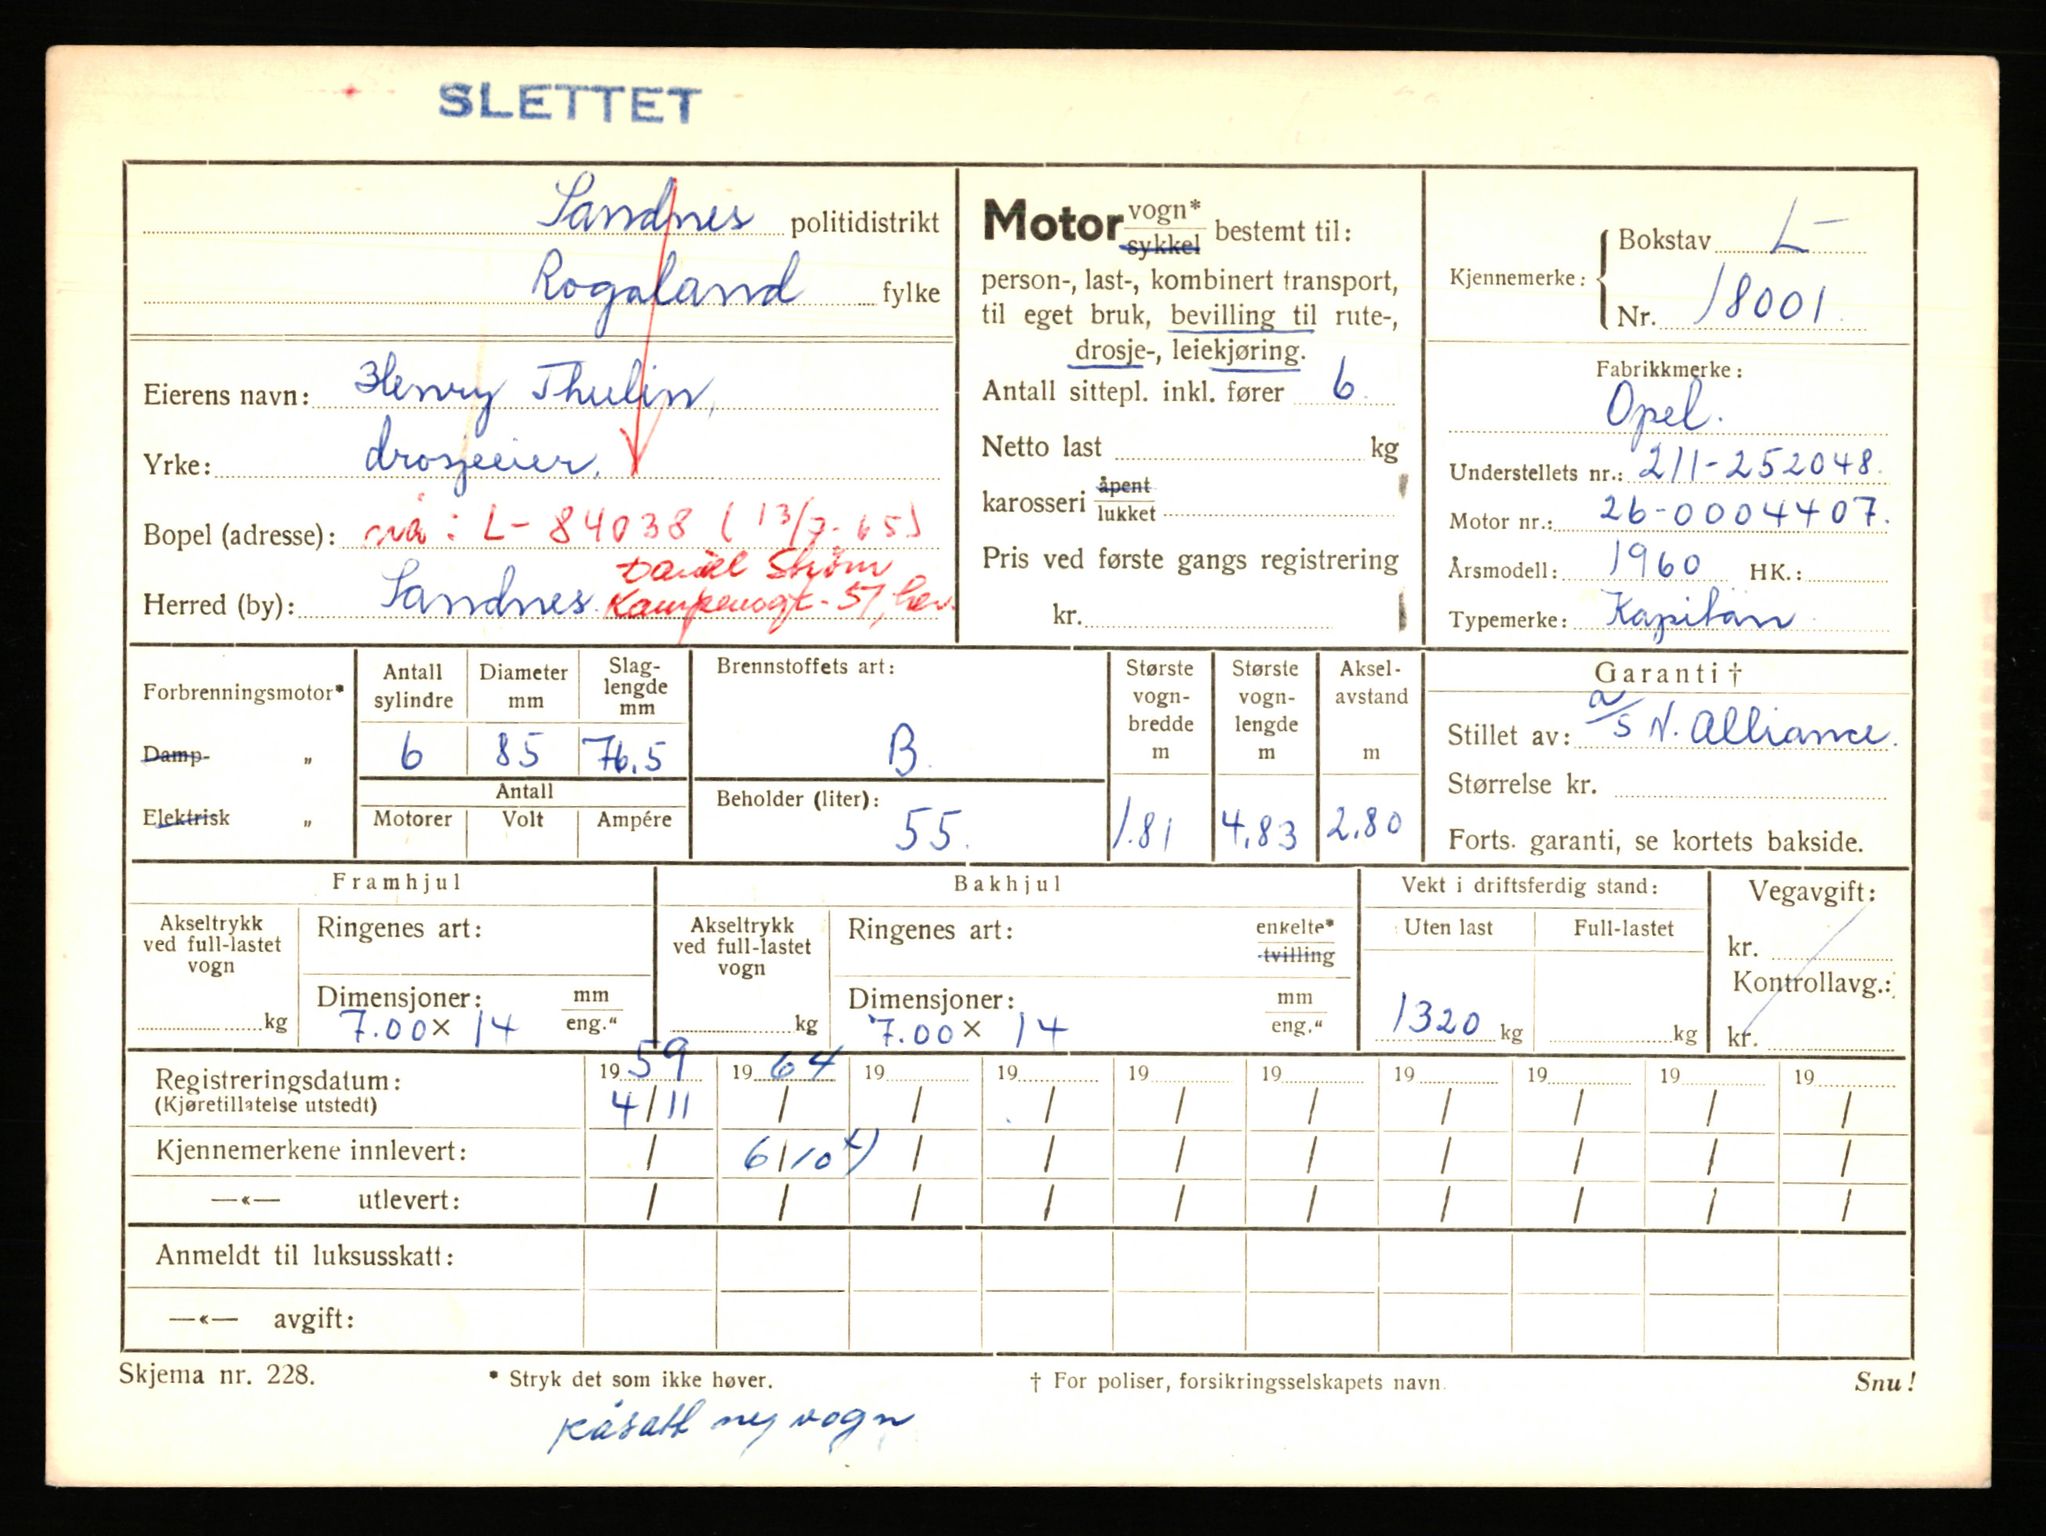 SLETTET
Sandnes politidistrikt
Rogaland fylke
Eierens navn: Henry Thulin,
Yrke: drosjeeier.
Bopel (adresse): nå: L-84038 (13/7-65)
Daniel Strøm
Herred (by): Sandnes. Kampenvgt-57, her.
Motor vogn* sykkel bestemt til:
person-, last-, kombinert transport,
til eget bruk, bevilling til rute-,
drosje-, leiekjøring.
Antall sittepl. inkl. fører 6
Netto last kg
karosseri åpent lukket
Pris ved første gangs registrering
kr.
Kjennemerke: Bokstav L-
Nr. 18001
Fabrikkmerke:
Opel.
Understellets nr.: 211-252048.
Motor nr.: 26-0004407.
Årsmodell: 1960 HK.:
Typemerke: Kapitän
Forbrenningsmotor*
Damp- „
Elektrisk „
Antall sylindre
6
Diameter mm
85
Slag-
lengde
mm
76.5
Antall
Motorer Volt Ampére
Brennstoffets art:
B.
Beholder (liter):
55.
Største
vogn-
bredde
m
1.81
Største
vogn-
lengde
m
4.83
Aksel-
avstand
m
2.80
Garanti †
Stillet av: a/s N. Alliance.
Størrelse kr.
Forts. garanti, se kortets bakside.
Framhjul
Akseltrykk
ved full-lastet
vogn
kg
Ringenes art:
Dimensjoner: mm
7.00 x 14 eng.“
Bakhjul
Akseltrykk
ved full-lastet
vogn
kg
Ringenes art: enkelte*
tvilling
Dimensjoner: mm
7.00 x 14 eng.“
Vekt i driftsferdig stand:
Uten last Full-lastet
1320 kg kg
Vegavgift:
kr.
Kontrollavg.:
kr.
Registreringsdatum: 1959 1964 19 19 19 19 19 19 19 19
(Kjøretillatelse utstedt) 4/11 / / / / / / / / /
Kjennemerkene innlevert: / 6/10 x) / / / / / / / /
—«— utlevert: / / / / / / / / / /
Anmeldt til luksusskatt:
—«— avgift:
Skjema nr. 228. * Stryk det som ikke høver. † For poliser, forsikringsselskapets navn. Snu!
påsatt ny vogn